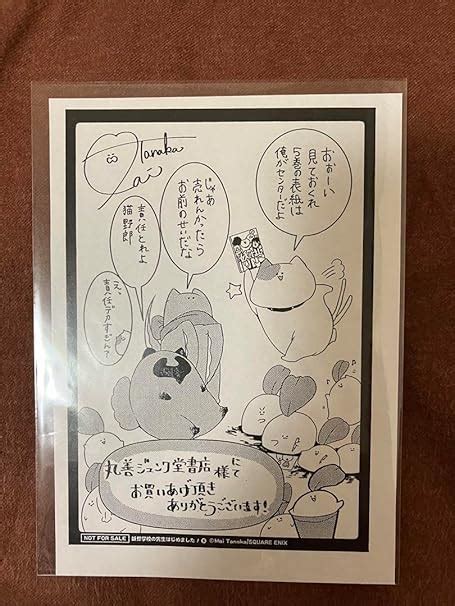 Tanaka
Mai
おぉーい
見ておくれ
5巻の表紙は
俺がセンターだよ
じゃあ
売れんかったら
お前のせいだな
責任とれよ
猫野郎
え、
責任デカすぎん？
丸善ジュンク堂書店様にて
お買いあげ頂き
ありがとうございます!
NOT FOR SALE
妖怪学校の先生はじめました!
©Mai Tanaka/SQUARE ENIX